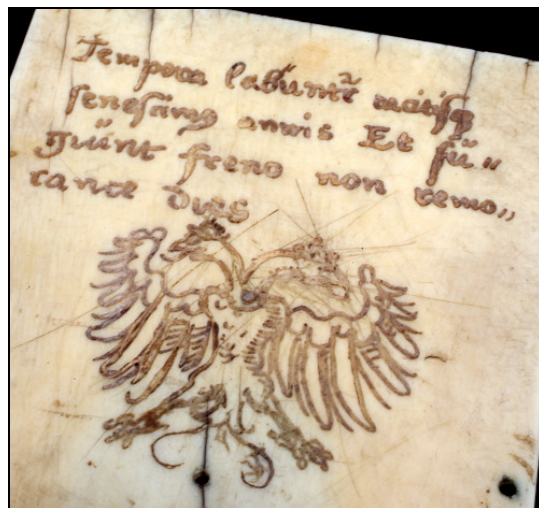 Tempora labunt̃r tacitisq
senescimꝰ annis Et fü„
giünt freno non remo„
rante dies